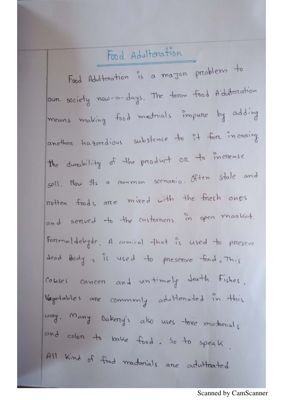 Food Adulteration
Food Adulteration is a major problem to
our society now-a-days. The term food Adulteration
means making food materials impure by adding
another hazardious substence to it for incrasing
the durability of the product or to increase
sell. Now its a common scenario. Often stale and
rotten foods are mixed with the fresh ones
and served to the customers in open market
Formaldehyde. A cemical that is used to preserve
dead body, is used to preserve food. This
causes cancer and untimely death Fishes,
Vegetables are commonly adulterated in this
way. Many Bakery's also uses toxic materials
and color to bake food. So to speak,
All kind of food materials are adultrated
Scanned by CamScanner